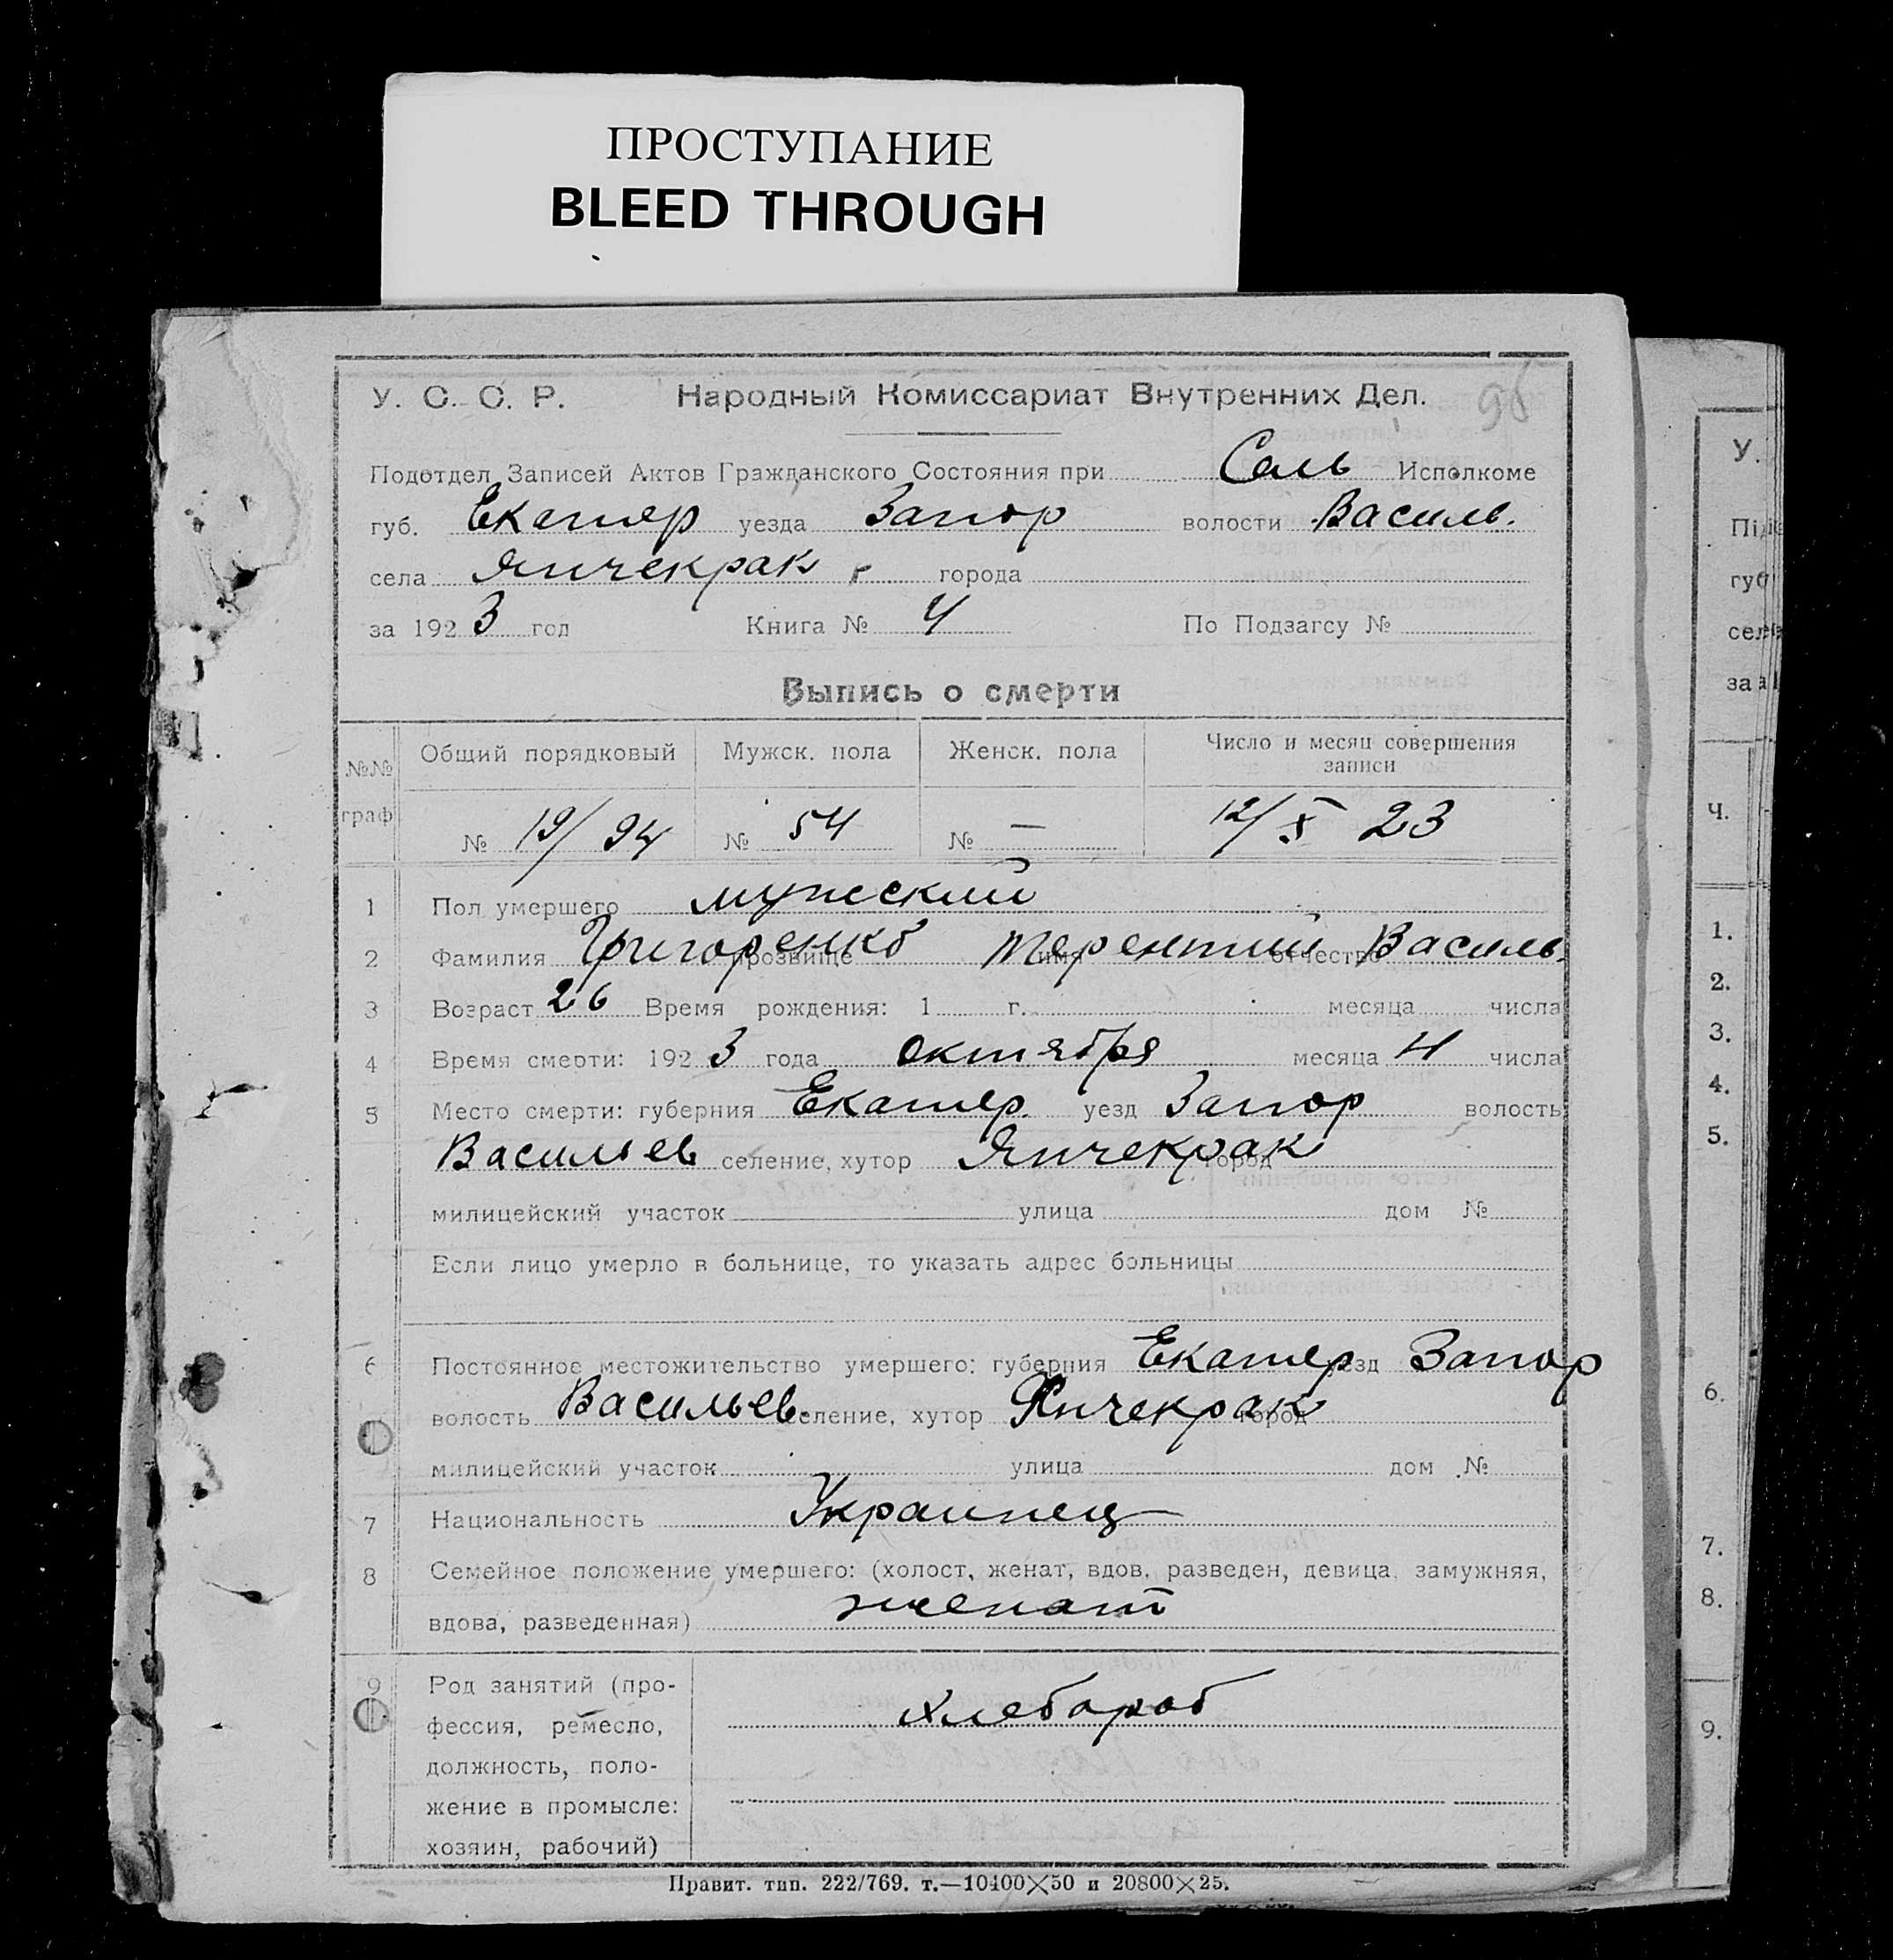 ПРОСТУПАНИЕ
BLEED THROUGH
У. С. С. Р. Народный Комиссариат Внутренних Дел. 96
Подотдел Записей Актов Гражданского Состояния при Сель Исполкоме
губ. Екатер уезда Запор волости Василь.
села Янчекрак города
за 1923 год Книга № 4 По Подзагсу №
Выпись о смерти
№№ граф Общий порядковый Мужск. пола Женск. пола Число и месяц совершения записи
№ 19/94 № 54 № — 12/X 23
1 Пол умершего мужеский
2 Фамилия Григоренко прозвище имя Терентий отчество Василь.
3 Возраст 26 Время рождения: 1 г. месяца числа
4 Время смерти: 1923 года октября месяца 11 числа
5 Место смерти: губерния Екатер. уезд Запор волость
Васильев селение, хутор Янчекрак город
милицейский участок улица дом №
Если лицо умерло в больнице, то указать адрес больницы
6 Постоянное местожительство умершего: губерния Екатер уезд Запор
волость Васильев. селение, хутор Янчекрак город
милицейский участок улица дом №
7 Национальность Украинец
8 Семейное положение умершего: (холост, женат, вдов, разведен, девица, замужняя,
вдова, разведенная) женат
9 Род занятий (про-
фессия, ремесло, хлебороб
должность, поло-
жение в промысле:
хозяин, рабочий)
Правит. тип. 222/769. т.—10400×50 и 20800×25.
У.
Під
губ
сел
за
Ч.
1.
2.
3.
4.
5.
6.
7.
8.
9.